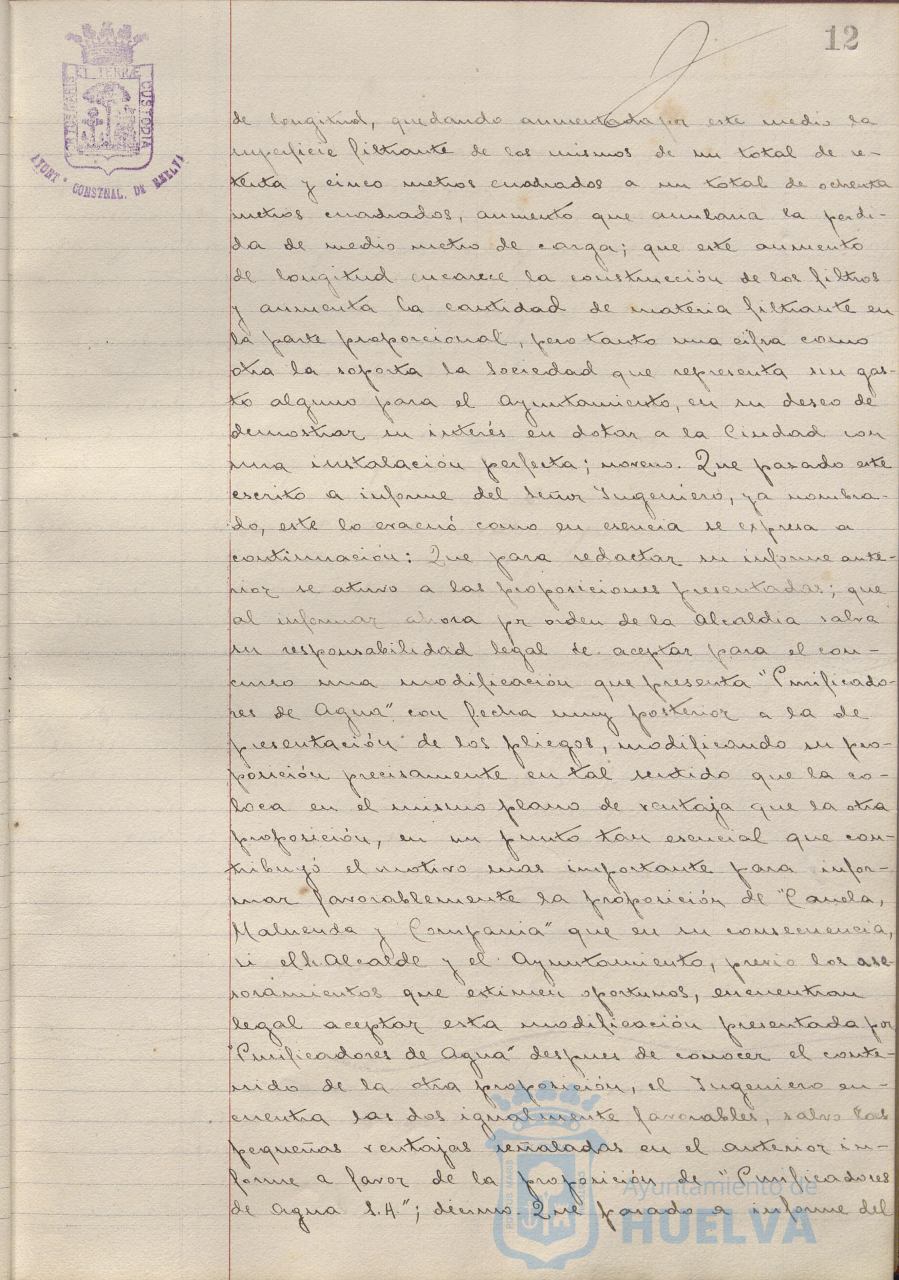 12
PORTUS MARIS ET TERRÆ CUSTODIA
AYUNT. CONSTNAL. DE HUELVA
de longitud, quedando aumentada por este medio la
superficie filtrante de los mismos de un total de se-
tenta y cinco metros cuadrados a un total de ochenta
metros cuadrados, aumento que anulana la perdi-
da de medio metro de carga; que este aumento
de longitud encarece la construcción de los filtros
y aumenta la cantidad de materia filtrante en
la parte proporcional, pero tanto una cifra como
otra la soporta la Sociedad que representa sin gas-
to alguno para el Ayuntamiento, en su deseo de
demostrar su interés en dotar a la Ciudad con
una instalación perfecta; noveno. Que pasado este
escrito a informe del Señor Ingeniero, ya nombra-
do, este lo evacuó como en esencia se espresa a
continuación: Que para redactar su informe ante-
rior se atuvo a las proposiciones presentadas; que
al informar ahora pr orden de la Alcaldia salva
su responsabilidad legal de aceptar para el con-
curso una modificación que presenta "Purificado-
res de Agua" con fecha muy posterior a la de
presentación de los pliegos, modificando su pro-
posición precisamente en tal sentido que la co-
loca en el mismo plano de ventaja que la otra
proposición, en un punto tan esencial que con-
tribuyó el motivo mas importante para infor-
mar favorablemente la proposición de "Canela,
Maluenda y Compania" que en su consecuencia,
si el Alcalde y el Ayuntamiento, previo los ase-
soramientos que estimen oportunos, encuentran
legal aceptar esta modificación presentada por
"Purificadores de Agua" despues de conocer el conte-
nido de la otra proposición, el Ingeniero en-
cuentra las dos igualmente favorables, salvo las
pequeñas ventajas señaladas en el anterior in-
forme a favor de la proposición de "Purificadores
de Agua S.A"; décimo. Que pasado a informe del
Ayuntamiento de
HUELVA